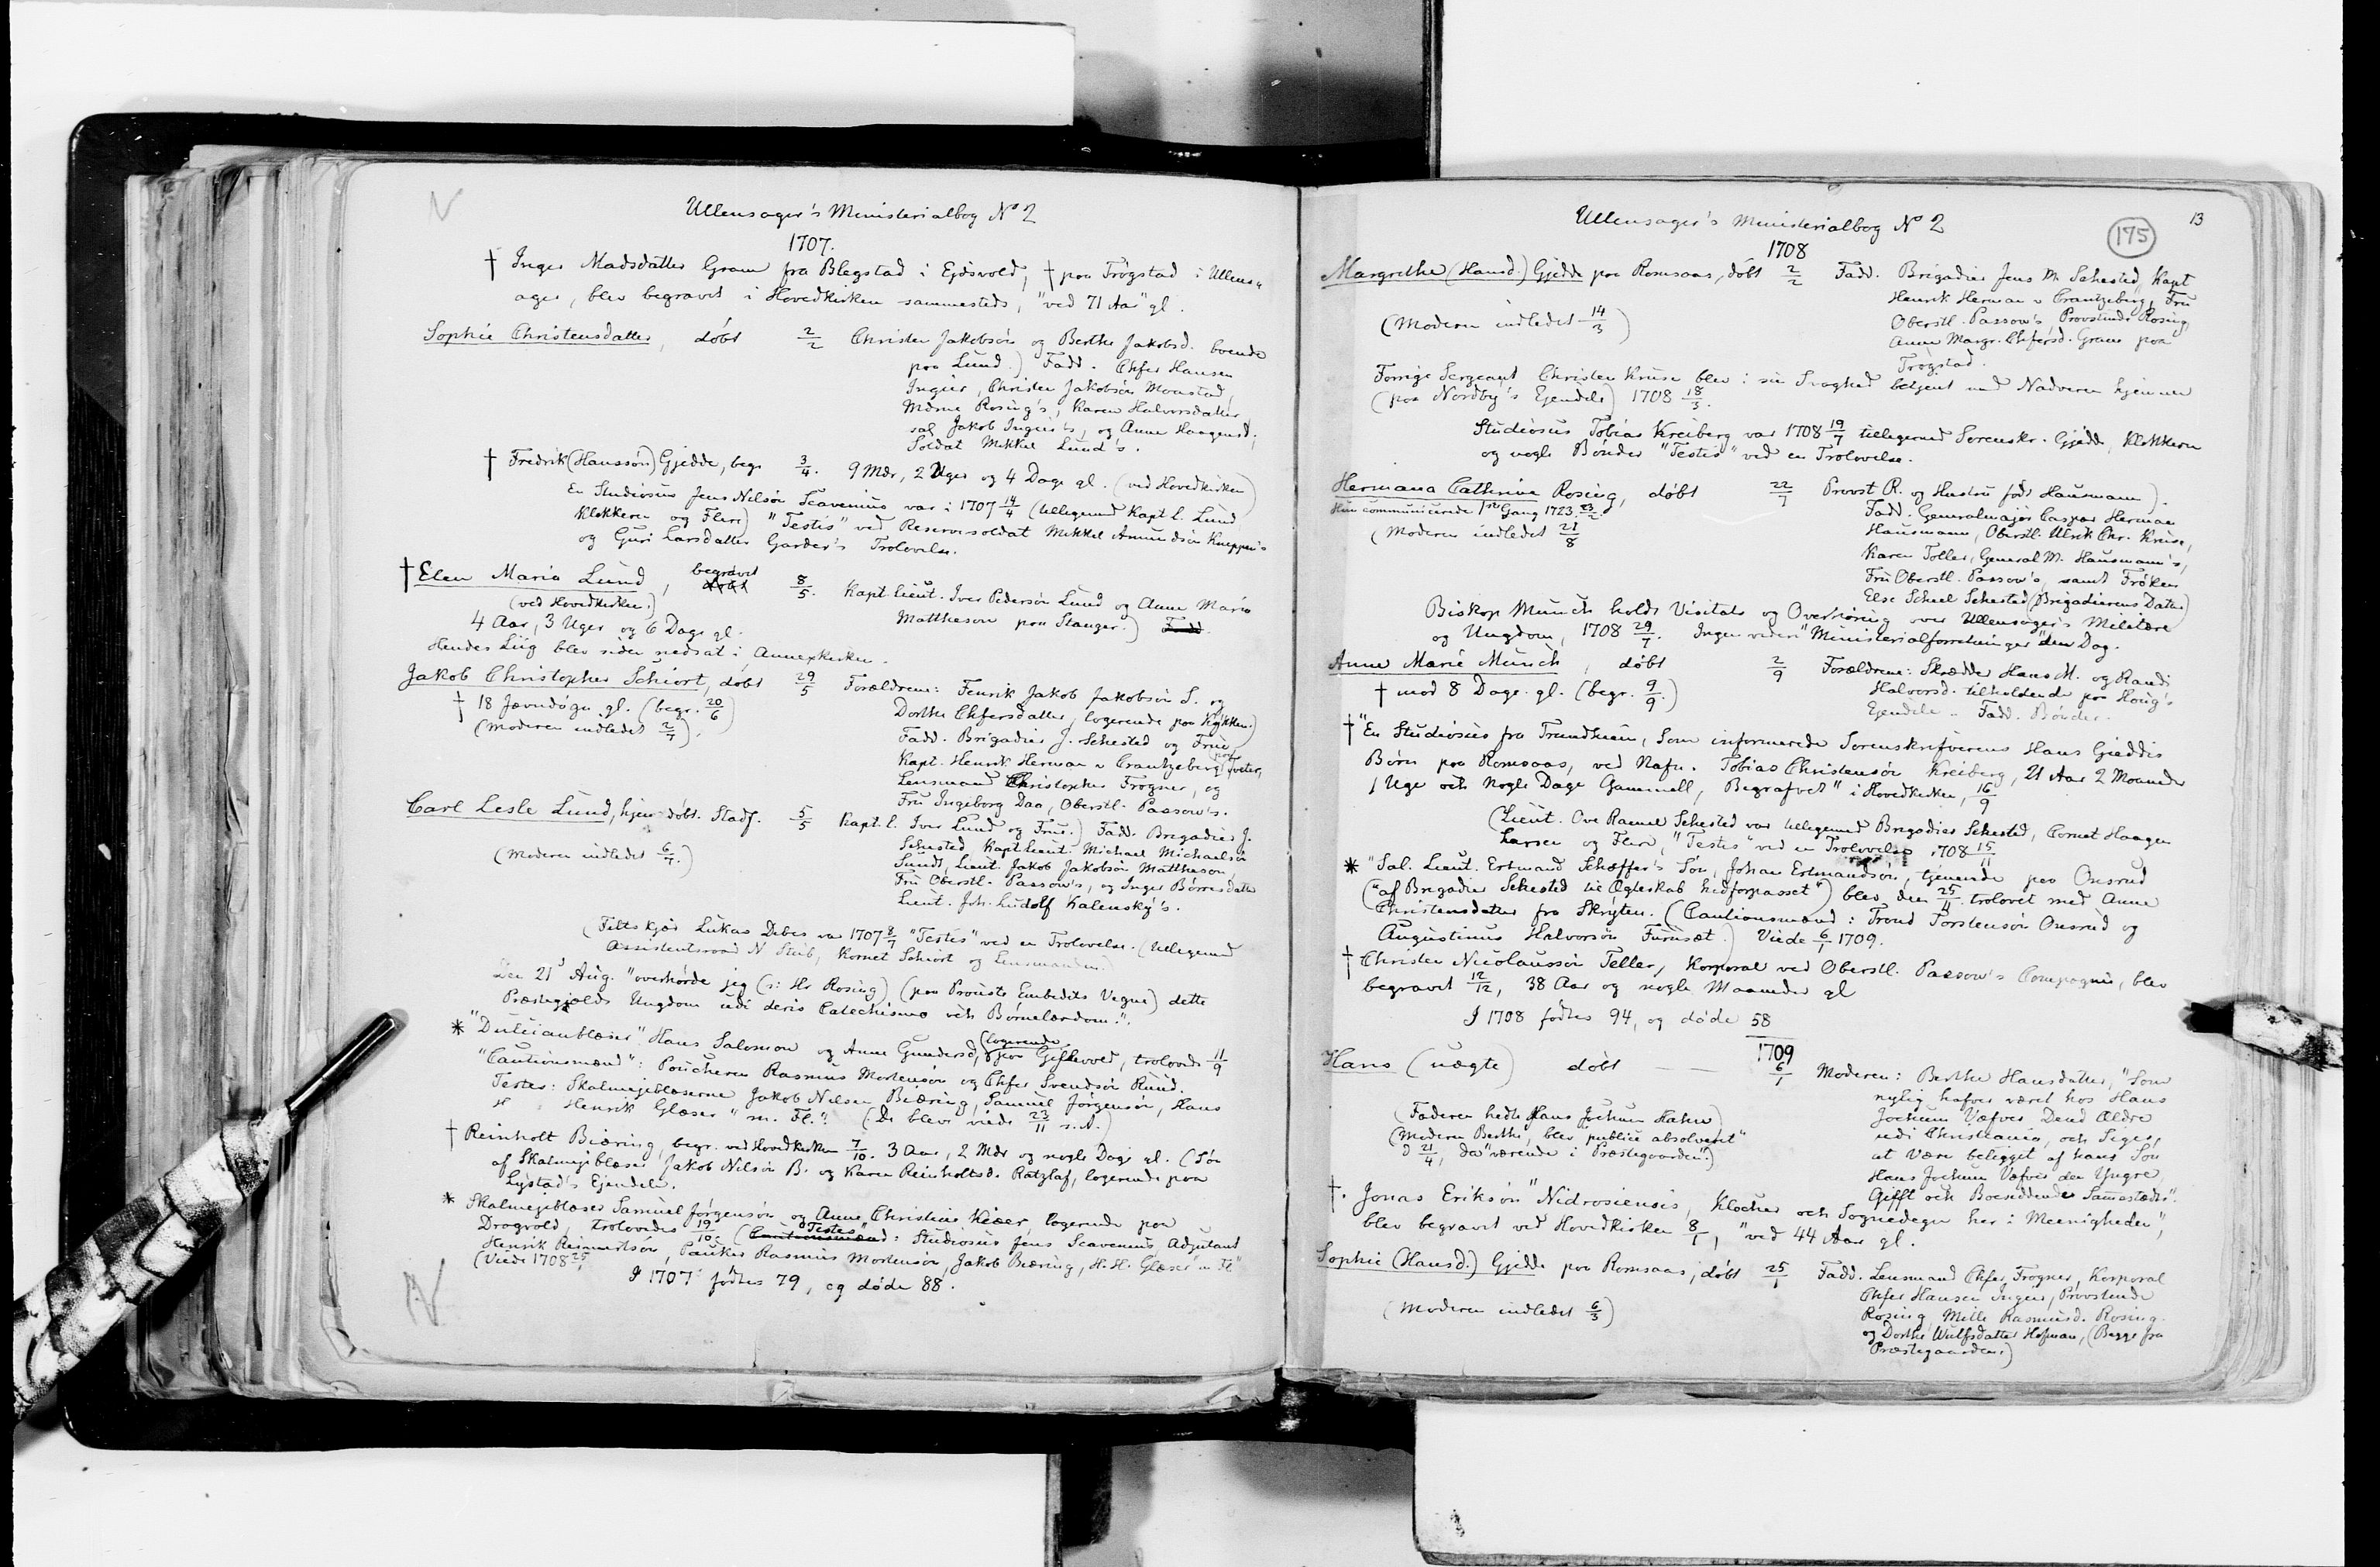 Ullensager's Ministerialbog No 2
1707.
† Inger Madsdatter Gram fra Blegstad i Ejdsvold, † paa Trøgstad i Ullens-
ager, blev begravet i Hovedkirken sammesteds, "ved 71 Aar" gl.
Sophie Christensdatter, døbt 2/2 Christen Jakobsøn og Berthe Jakobsd. boende
paa Lund.) Fadd. Chfer Hansen
Ingier, Christen Jakobsøn Monstad,
Mdme Rosing's, Karen Halvorsdatter,
sal Jakob Ingier's, og Anne Haagensd,
Soldat Mikkel Lund's.
† Fredrik (Hanssøn) Gjedde, begr. 3/4. 9 Mdr, 2 Uger og 4 Dage gl. (ved Hovedkirken)
En Studiosus Jens Nilsøn Scavenius var i 1707 14/4 (tilligemed Kapt. l. Lund
Klokkeren og Flere) "Testis" ved Reservesoldat Mikkel Amundsøn Kneppen's
og Guri Larsdatter Garder's Trolovelse.
† Elen Maria Lund, begravet 8/5. Kapt. Lieut. Iver Pedersøn Lund og Anne Maria
(ved Hovedkirken.) Mattheson paa Stanger.) Fadd.
4 Aar, 3 Uger og 6 Dage gl.
Hendes Liig blev siden nedsat i Annexkirken.
Jakob Christopher Schiort, døbt 29/5 Forældrene: Fenrik Jakob Jakobsøn S. og
† 18 Jævndøgn gl. (begr. 20/6) Dorthe Chfersdatter, logerende paa Kykken.)
(Moderen indledet 2/7). Fadd. Brigadier J. Sehested og Frue,
Kapt. Henrik Herman v Crantzeberg paa Tveter,
Lensmand Christopher Frogner, og
Fru Ingeborg Daa, Oberstl. Passow's.
Carl Lesle Lund, hjem-døbt. Stadf. 5/5 Kapt. l. Iver Lund og Frue.) Fadd. Brigadier J.
(Moderen indledet 6/7.) Sehested Kapt Lieut. Michael Michaelsøn
Sundt, Lieut. Jakob Jakobsøn Mattheson,
Fru Oberstl. Passow's, og Inger Børresdatter
Lieut. Joh. Ludolf Kalensky's.
(Feltskjær Lukas Debes var 1707 8/7 "Testis" ved en Trolovelse. (tilligemed
Assistentsraad N Stub, Kornet Schiort og Lensmanden.)
Den 21de Aug. "overhørde jeg (ɔ: Hr Rosing) (paa Prouste Embedets Vegne) dette
Præstegjælds Ungdom udi deris Catechismo och Børnelærdom.".
* "Dulcianblæser" Hans Salomon og Anne Gundersd, (logerende paa Gislevold, trolovede 11/9
"Cautionsmænd": Poucheren Rasmus Mortensøn og Chfer Svendsøn Ruud.
Testes: Skalmejeblæserne Jakob Nilsen Biæring, Samuel Jørgensøn, Hans
H Henrik Glæser "m. Fl." (De bleve viede 23/11 s.A.)
† Reinholt Biæring, begr. ved Hovedkirken 7/10. 3 Aar, 2 Mdr og nogle Dage gl. (Søn
af Skalmejeblæser Jakob Nilsøn B. og Karen Reinholtsd. Ratzlaf, logerende paa
Lystad's Ejendele.
* Skalmejeblæser Samuel Jørgensøn og Anne Christine Kiær, logerende paa
Dragvold, trolovedes 19/10. (Cautionsmænd "Testes": Studiosus Jens Scavenius, Adjutant
Henrik Reinertsøn, Pauker Rasmus Mortensøn, Jakob Biæring, H.H. Glæser "m Fl"
(Viede 1708 25/
I 1707 fødtes 79, og døde 88.
Ullensager's Ministerialbog No 2
175
13
1708
Margrethe (Hansd.) Gjedde paa Romsaas, døbt 2/2 Fadd. Brigadier Jens M. Sehested, Kapt
Henrik Herman v Crantzeberg, Fru
(Moderen indledet 14/3) Oberstl. Passow's Provstinde Rosing,
Anne Margr. Chfersd. Gram paa
Trøgstad.
Forrige Sergeant Christen Kruse blev i sin Svaghed betjent med Nadveren hjemme
(paa Nordby's Ejendele) 1708 18/3.
Studiosus Tobias Kreiberg var 1708 19/7 tilligemed Sorenskr. Gjedde, Klokkeren
og nogle Bønder "Testis" ved en Trolovelse.
Hermana Cathrine Rosing, døbt 22/7 Provst R. og Hustru født Hausmann).
Hun communicerede 1ste Gang 1723 23/2. Fadd. Generalmajor Caspar Herman
(Moderen indledet 21/8 Hausmann, Oberstl. Ulrik Chr. Kruse,
Karen Toller, General M. Hausmann's,
Fru Oberstl. Passow's, samt Frøken
Else Scheel Sehested (Brigadierens Datter)
Biskop Munch holdt Visitats og Overhøring over Ullensager's Militære
og Ungdom, 1708 29/7. Ingen videre "Ministerialforretninger" den Dag.
Anne Marie Munch, døbt 2/9 Forældrene: Skrædder Hans M. og Randi
† mod 8 Dage gl. (begr. 9/9.) Halvorsd. tilholdende paa Houg's
Ejendele. Fadd. Bønder.
† "En Studiosus fra Trundhiem, Som informerede Sorenskrifverens Hans Gieddis
Børn paa Romsaas, ved Nafn. Tobias Christensøn Kreiberg, 21 Aar 2 Maaneder
1 Uge och Nogle Dage Gammell, Begrafvet" i Hovedkirken, 16/9
(Lieut. Ove Ramel Sehested var tilligemed Brigadier Sehested, Cornet Haagen
Larsen og Flere, "Testis" ved en Trolovelse 1708 15/11
* "Sal. Lieut. Ertmand Schæffer's Søn, Johan Ertmandsøn, tjenende paa Onsrud
("af Brigadier Sehested til Ægteskab hidforpasset") blev den 25/11 trolovet med Anne
Christensdatter fra Skryten. (Cautionsmænd: Trond Torstensøn Onsrud og
Augustinus Halvorsøn Furuset.) Viede 6/1 1709.
† Christen Nicolaussøn Teller, Korporal ved Oberstl. Passow's Compagnie, blev
begravet 12/12, 38 Aar og nogle Maaneder gl
I 1708 fødtes 94, og døde 58
1709
Hans (uægte) døbt — — 6/1 Moderen: Berthe Hansdatter, "Som
nylig hafver været hos Hans
(Faderen hedte Hans Jochum Hahn) Jochum Væfver Dend Ældre
(Moderen Berthe, blev "publice absolveret" udi Christiania, och Siges,
D 21/4, da "værende i Præstegaarden".) at Være belegget af hans Søn
Hans Jochum Væfver den Yngre,
Gifft och Boesiddende Sammestædts".
†. Jonas Eriksøn "Nidrosiensis, Klocher och Sognedegn her i Meenigheden",
blev begravet ved Hovedkirken 8/1, "ved 44 Aar gl.
Sophie (Hansd.) Gjedde paa Romsaas, døbt 25/1 Fadd. Lensmand Chfer Frogner, Korporal
Chfer Hansen Ingier, Provstinde
(Moderen indledet 6/3) Rosing Mille Rasmusd. Rosing.
og Dorthe Wulfsdatter Hofman, (Begge fra
Præstegaarden.)